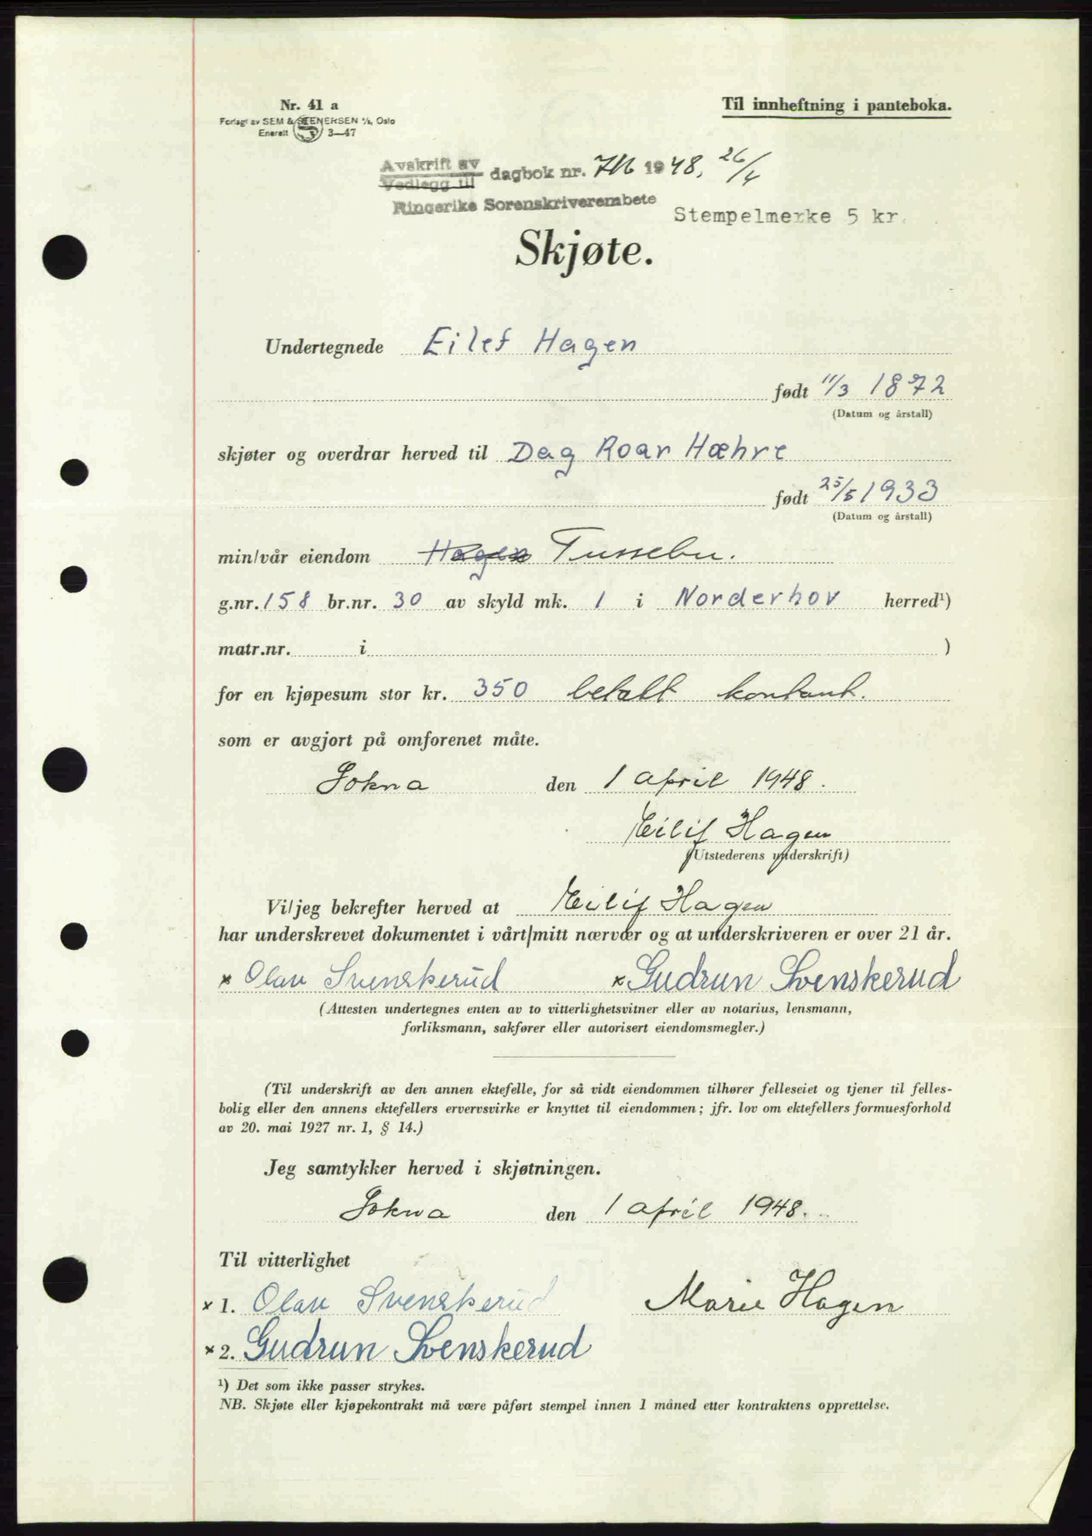 Nr. 41 a
Til innheftning i panteboka.
Forlagt av SEM & STENERSEN A/s, Oslo
Enerett 3—47
Avskrift av
Vedlegg til
dagbok nr. 1948, 26/4
Ringerike Sorenskriverembete
Stempelmerke 5 kr.
Skjøte.
Undertegnede Eilef Hagen
født 11/3 1872
(Datum og årstall)
skjøter og overdrar herved til Dag Roar Hæhre
født 25/5 1933
(Datum og årstall)
min/vår eiendom Hagen Tussebu.
g.nr. 158 br.nr. 30 av skyld mk. 1 i Norderhov herred¹)
matr.nr. i )
for en kjøpesum stor kr. 350 betalt kontant.
som er avgjort på omforenet måte.
Sokna den 1 april 1948.
Eilif Hagen
(Utstederens underskrift)
Vi/jeg bekrefter herved at Eilif Hagen
har underskrevet dokumentet i vårt/mitt nærvær og at underskriveren er over 21 år.
× Olav Svenskerud × Gudrun Svenskerud
(Attesten undertegnes enten av to vitterlighetsvitner eller av notarius, lensmann,
forliksmann, sakfører eller autorisert eiendomsmegler.)
(Til underskrift av den annen ektefelle, for så vidt eiendommen tilhører felleseiet og tjener til felles-
bolig eller den annens ektefellers ervervsvirke er knyttet til eiendommen; jfr. lov om ektefellers formuesforhold
av 20. mai 1927 nr. 1, § 14.)
Jeg samtykker herved i skjøtningen.
Sokna den 1 april 1948.
Til vitterlighet
× 1. Olav Svenskerud Marie Hagen
× 2. Gudrun Svenskerud
¹) Det som ikke passer strykes.
NB. Skjøte eller kjøpekontrakt må være påført stempel innen 1 måned etter kontraktens opprettelse.